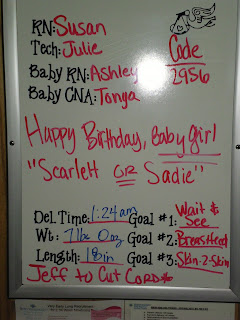 RN: Susan
Tech: Julie
Code
Baby RN: Ashley
2956
Baby CNA: Tonya
Happy Birthday, Baby girl
"Scarlett OR Sadie"
Del. Time: 1:24am Goal #1: Wait & See
Wt: 7lbs 0oz Goal #2: Breastfeed
Length: 18in Goal #3: Skin-2-Skin
Jeff to Cut Cord